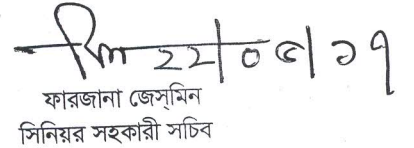 ২২|০৫|১৭
ফারজানা জেস্‌মিন
সিনিয়র সহকারী সচিব